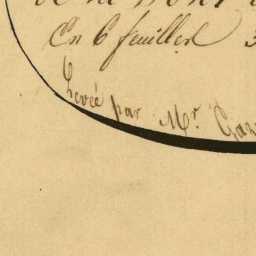 En 6 feuilles 3
Levée par Mr. Gas